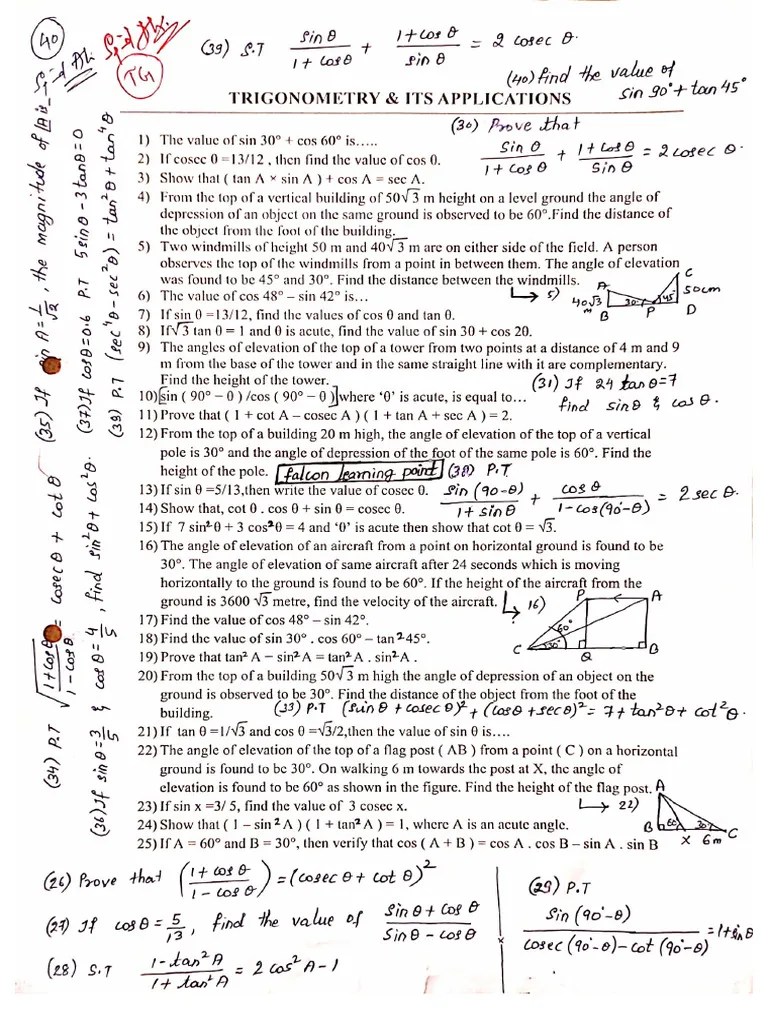 (40)
(39) S.T sin θ / 1 + cos θ + 1 + cos θ / sin θ = 2 cosec θ.
TG
(40) find the value of
sin 90° + tan 45°
TRIGONOMETRY & ITS APPLICATIONS
(30) Prove that
Sin θ / 1 + cos θ + 1 + cos θ / Sin θ = 2 cosec θ.
1) The value of sin 30° + cos 60° is…..
2) If cosec θ =13/12 , then find the value of cos θ.
3) Show that ( tan A × sin A ) + cos A = sec A.
4) From the top of a vertical building of 50√3 m height on a level ground the angle of
depression of an object on the same ground is observed to be 60°.Find the distance of
the object from the foot of the building.
5) Two windmills of height 50 m and 40√3 m are on either side of the field. A person
observes the top of the windmills from a point in between them. The angle of elevation
was found to be 45° and 30°. Find the distance between the windmills.
5) A 40√3 m B 30° P 45° C 50cm D
6) The value of cos 48° – sin 42° is…
7) If sin θ =13/12, find the values of cos θ and tan θ.
8) If √3 tan θ = 1 and θ is acute, find the value of sin 30 + cos 20.
9) The angles of elevation of the top of a tower from two points at a distance of 4 m and 9
m from the base of the tower and in the same straight line with it are complementary.
Find the height of the tower.
(31) If 24 tan θ = 7
find sin θ & cos θ.
10)[sin ( 90° – θ ) /cos ( 90° – θ )]where ‘θ’ is acute, is equal to…
11) Prove that ( 1 + cot A – cosec A ) ( 1 + tan A + sec A ) = 2.
12) From the top of a building 20 m high, the angle of elevation of the top of a vertical
pole is 30° and the angle of depression of the foot of the same pole is 60°. Find the
height of the pole.
falcon learning point
P.T
sin (90-θ) / 1 + sin θ + cos θ / 1 - cos(90°-θ) = 2 sec θ.
13) If sin θ =5/13,then write the value of cosec θ.
14) Show that, cot θ . cos θ + sin θ = cosec θ.
15) If 7 sin² θ + 3 cos² θ = 4 and ‘θ’ is acute then show that cot θ = √3.
16) The angle of elevation of an aircraft from a point on horizontal ground is found to be
30°. The angle of elevation of same aircraft after 24 seconds which is moving
horizontally to the ground is found to be 60°. If the height of the aircraft from the
ground is 3600 √3 metre, find the velocity of the aircraft.
16) P A 60° 30° C Q B
17) Find the value of cos 48° – sin 42°.
18) Find the value of sin 30° . cos 60° – tan² 45°.
19) Prove that tan² A – sin² A = tan² A . sin² A .
20) From the top of a building 50√3 m high the angle of depression of an object on the
ground is observed to be 30°. Find the distance of the object from the foot of the
building.
(33) P.T (sin θ + cosec θ)² + (cos θ + sec θ)² = 7 + tan² θ + cot² θ.
21) If tan θ =1/√3 and cos θ =√3/2,then the value of sin θ is….
22) The angle of elevation of the top of a flag post ( AB ) from a point ( C ) on a horizontal
ground is found to be 30°. On walking 6 m towards the post at X, the angle of
elevation is found to be 60° as shown in the figure. Find the height of the flag post.
22) A B 60° 30° C X 6m
23) If sin x =3/ 5, find the value of 3 cosec x.
24) Show that ( 1 – sin ² A ) ( 1 + tan² A ) = 1, where A is an acute angle.
25) If A = 60° and B = 30°, then verify that cos ( A + B ) = cos A . cos B – sin A . sin B
(26) Prove that (1 + cos θ / 1 - cos θ) = (cosec θ + cot θ)²
(27) If cos θ = 5/13, find the value of sin θ + cos θ / sin θ - cos θ
(28) S.T 1 - tan² A / 1 + tan² A = 2 cos² A - 1
(29) P.T
sin (90°-θ) / cosec (90°-θ) - cot (90°-θ) = 1 + sin θ
(34) P.T √(1 + cos θ / 1 - cos θ) = cosec θ + cot θ
(35) If sin A = 1/√2, the magnitude of
(36) If sin θ = 3/5 & cos θ = 4/5, find sin² θ + cos² θ.
(37) If cos θ = 0.6 P.T 5 sin θ - 3 tan θ = 0
(39) P.T (sec⁴ θ - sec² θ) = tan² θ + tan⁴ θ